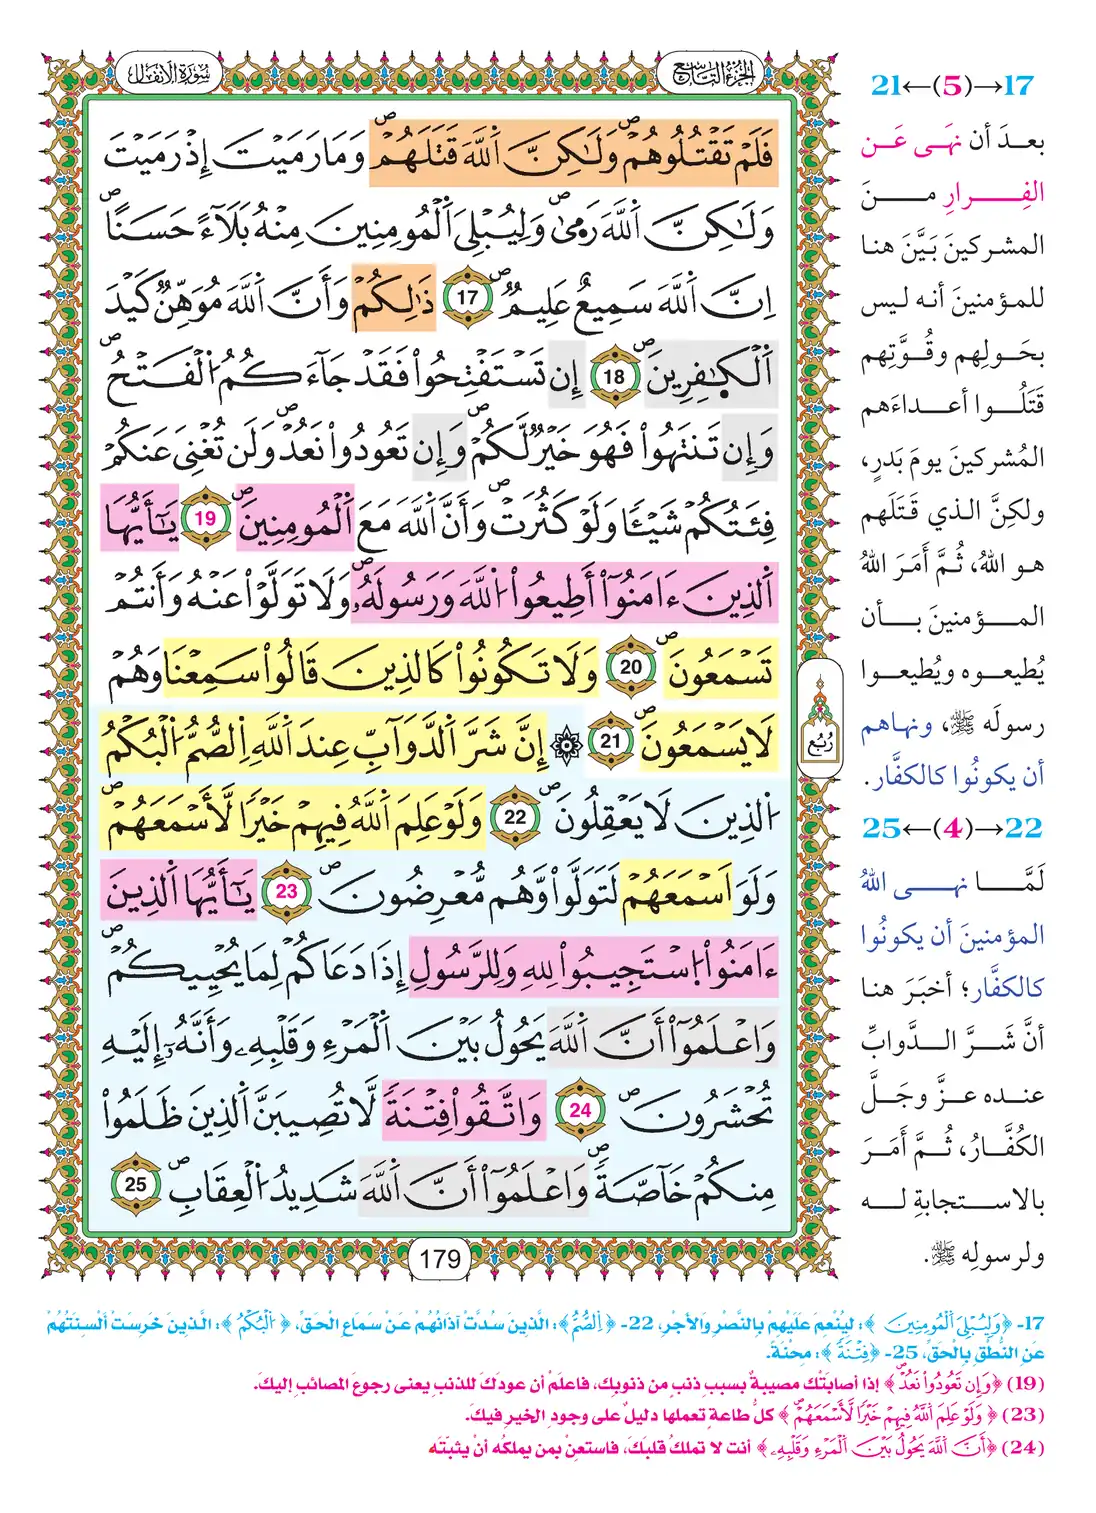 سُورَةُ الأَنفَالِ
الجُزْءُ التَّاسِعُ
فَلَمْ تَقْتُلُوهُمْ وَلَٰكِنَّ اَللَّهَ قَتَلَهُمْۖ وَمَا رَمَيْتَ إِذْ رَمَيْتَ
وَلَٰكِنَّ اَللَّهَ رَمَىٰۖ وَلِيُبْلِيَ اَلْمُومِنِينَ مِنْهُ بَلَآءً حَسَناًۖ
اِنَّ اَللَّهَ سَمِيعٌ عَلِيمٌۖ 17 ذَٰلِكُمْ وَأَنَّ اَللَّهَ مُوَهِّنٌ كَيْدَ
اَلْكَٰفِرِينَۖ 18 إِن تَسْتَفْتِحُواْ فَقَدْ جَآءَكُمُ اُلْفَتْحُۖ
وَإِن تَنتَهُواْ فَهُوَ خَيْرٌ لَّكُمْۖ وَإِن تَعُودُواْ نَعُدْۖ وَلَن تُغْنِيَ عَنكُمْ
فِئَتُكُمْ شَيْـًٔا وَلَوْ كَثُرَتْۖ وَأَنَّ اَللَّهَ مَعَ اَلْمُومِنِينَۖ 19 يَٰٓأَيُّهَا
اَلذِينَ ءَامَنُوٓاْ أَطِيعُواْ اُللَّهَ وَرَسُولَهُۥۖ وَلَا تَوَلَّوْاْ عَنْهُ وَأَنتُمْ
تَسْمَعُونَۖ 20 وَلَا تَكُونُواْ كَالذِينَ قَالُواْ سَمِعْنَا وَهُمْ
لَا يَسْمَعُونَۖ 21 ۞ إِنَّ شَرَّ اَلدَّوَآبِّ عِندَ اَللَّهِ اِلصُّمُّ اُلْبُكْمُ
اُلذِينَ لَا يَعْقِلُونَۖ 22 وَلَوْ عَلِمَ اَللَّهُ فِيهِمْ خَيْراً لَّأَسْمَعَهُمْۖ
وَلَوَ اَسْمَعَهُمْ لَتَوَلَّواْ وَّهُم مُّعْرِضُونَۖ 23 يَٰٓأَيُّهَا اَلذِينَ
ءَامَنُواْ اُسْتَجِيبُواْ لِلهِ وَلِلرَّسُولِ إِذَا دَعَاكُمْ لِمَا يُحْيِيكُمْۖ
وَاعْلَمُوٓاْ أَنَّ اَللَّهَ يَحُولُ بَيْنَ اَلْمَرْءِ وَقَلْبِهِۦ وَأَنَّهُۥٓ إِلَيْهِ
تُحْشَرُونَۖ 24 وَاتَّقُواْ فِتْنَةً لَّا تُصِيبَنَّ اَلذِينَ ظَلَمُواْ
مِنكُمْ خَآصَّةًۖ وَاعْلَمُوٓاْ أَنَّ اَللَّهَ شَدِيدُ اُلْعِقَابِۖ 25
رُبُع
179
17→(5)←21
بعدَ أن نهَى عَن
الفِرارِ منَ
المشركينَ بَيَّنَ هنا
للمؤمنينَ أنه ليس
بحَولِهم وقُوَّتِهم
قَتَلُوا أعداءَهم
المُشركينَ يومَ بَدرٍ،
ولكِنَّ الذي قَتَلَهم
هو اللهُ، ثُمَّ أَمَرَ اللهُ
المؤمنينَ بأن
يُطيعوه ويُطيعوا
رسولَه ﷺ، ونهاهم
أن يكونُوا كالكفَّار.
22→(4)←25
لَمَّا نهى اللهُ
المؤمنينَ أن يكونُوا
كالكفَّار؛ أخبَرَ هنا
أنَّ شَرَّ الدَّوابِّ
عنده عزَّ وجَلَّ
الكُفَّارُ، ثُمَّ أَمَرَ
بالاستجابةِ له
ولرسولِه ﷺ.
17- ﴿وَلِيُبْلِيَ اَلْمُومِنِينَ﴾: لِيُنْعِمَ عَلَيْهِمْ بِالنَّصْرِ وَالأَجْرِ، 22- ﴿اِلصُّمُّ﴾: الَّذِينَ سُدَّتْ آذَانُهُمْ عَنْ سَمَاعِ الحَقِّ، ﴿اُلْبُكْمُ﴾: الَّذِينَ خَرِسَتْ أَلْسِنَتُهُمْ
عَنِ النُّطْقِ بِالْحَقِّ، 25- ﴿فِتْنَةً﴾: مِحْنَةً.
(19) ﴿وَإِن تَعُودُواْ نَعُدْۖ﴾ إذا أصابَتْك مصيبةٌ بسببِ ذنبٍ من ذنوبِك، فاعلَمْ أن عودَكَ للذنبِ يعنى رجوعَ المصائبِ إليكَ.
(23) ﴿وَلَوْ عَلِمَ اَللَّهُ فِيهِمْ خَيْراً لَّأَسْمَعَهُمْۖ﴾ كلُّ طاعةٍ تعملها دليلٌ على وجودِ الخيرِ فيكَ.
(24) ﴿أَنَّ اَللَّهَ يَحُولُ بَيْنَ اَلْمَرْءِ وَقَلْبِهِۦ﴾ أنت لا تملكُ قلبَكَ، فاستعنْ بمن يملكُه أنْ يثبتَه